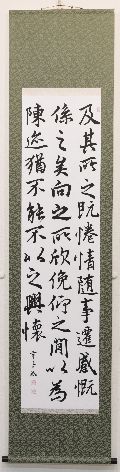 及其所之既惓情随事遷感慨
係之矣向之所欣俛仰之間以為
陳迹猶不能不以之興懐